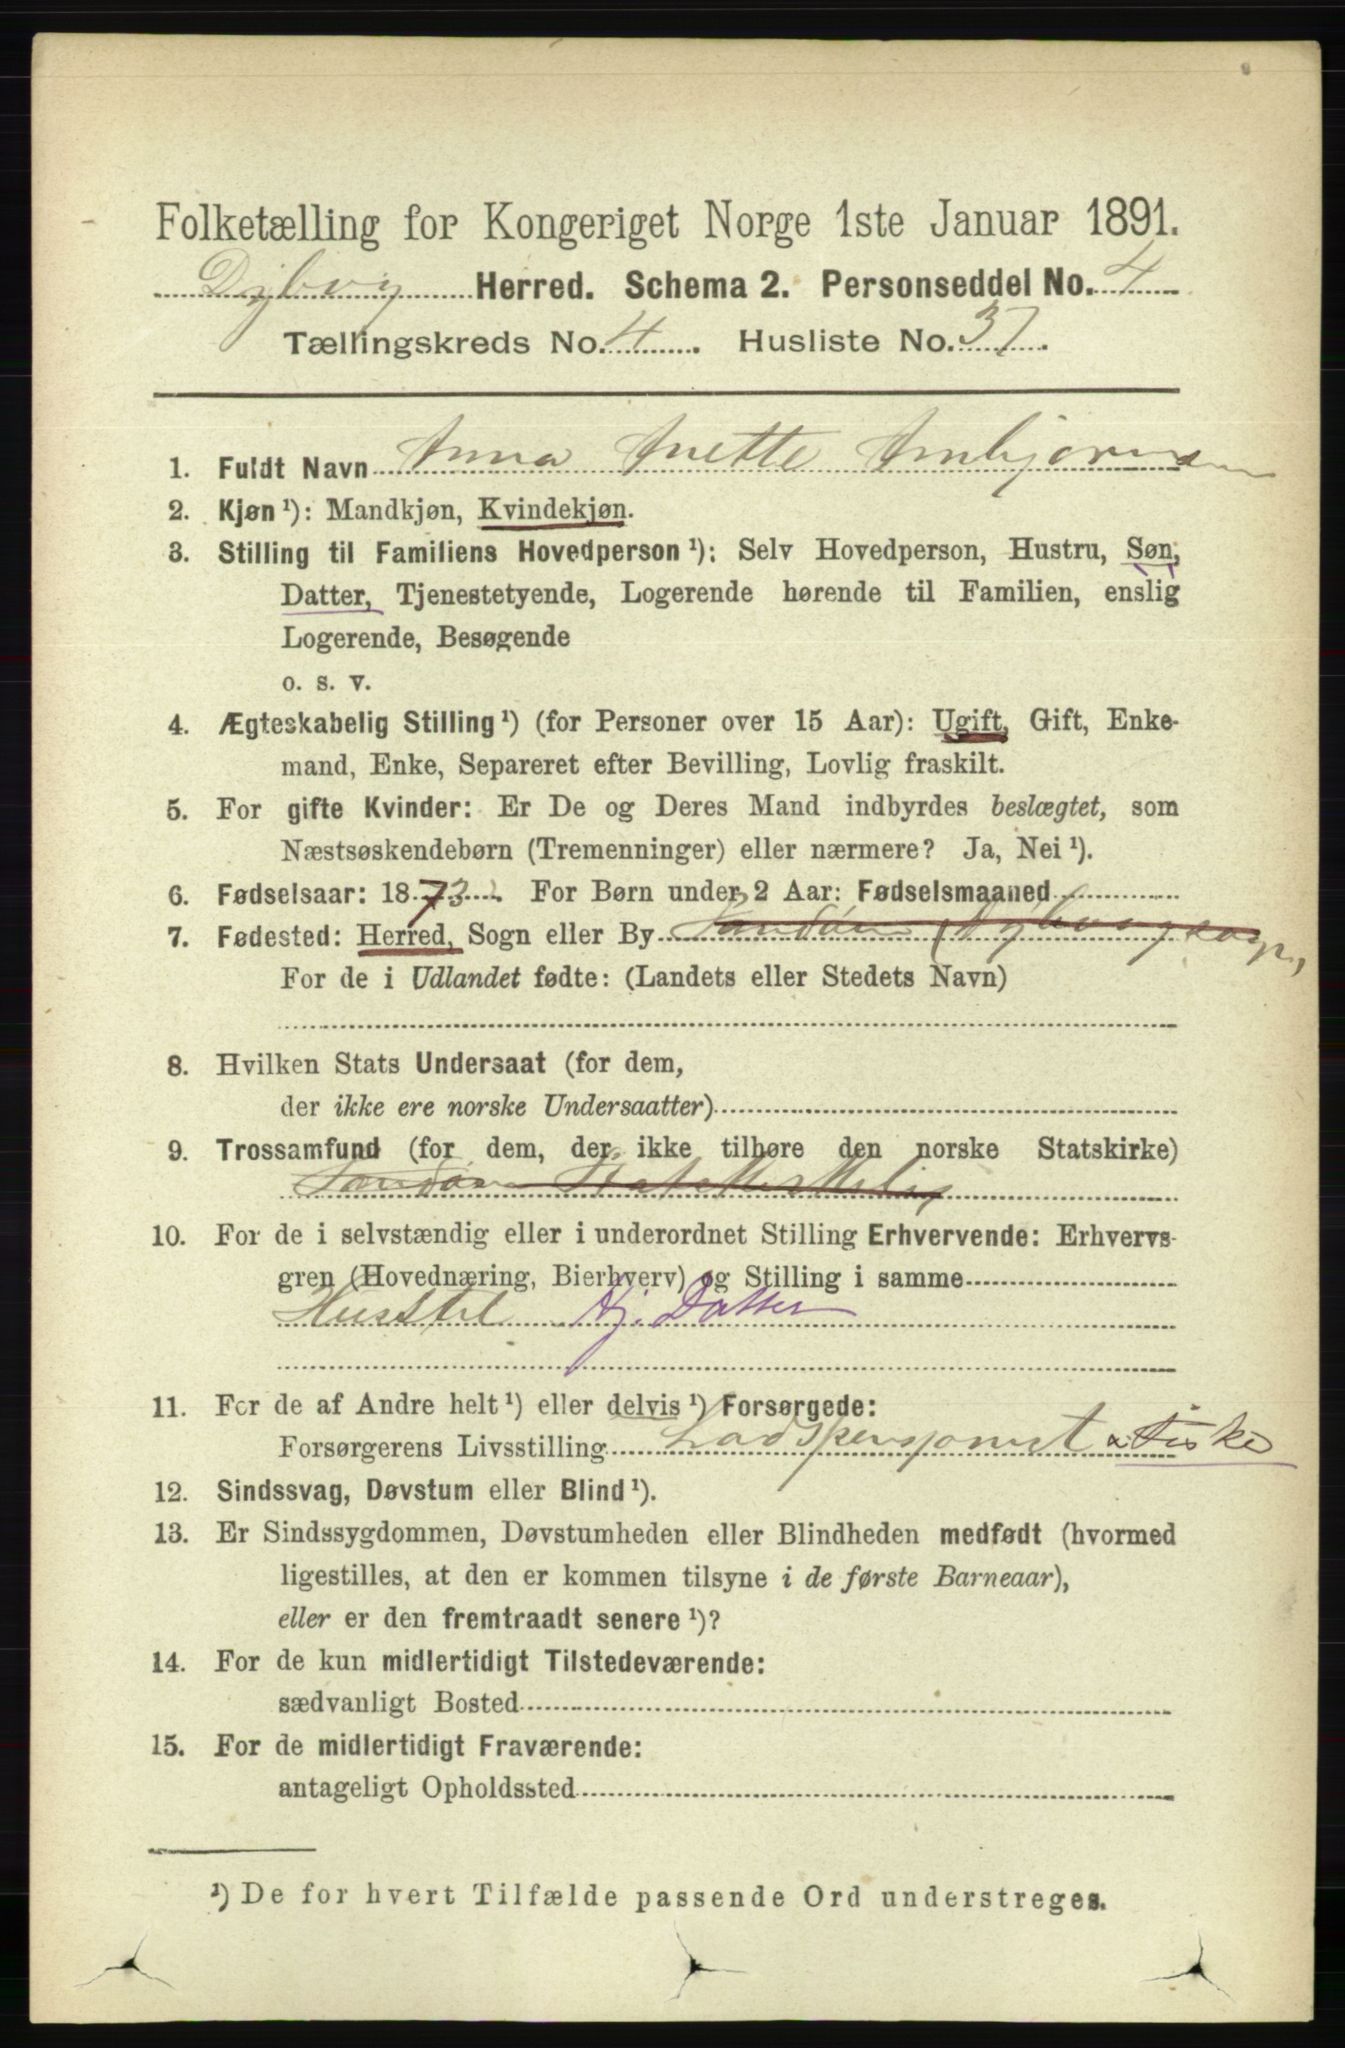 Folketælling for Kongeriget Norge 1ste Januar 1891.
Dybvig Herred. Schema 2. Personseddel No. 4
Tællingskreds No. 4. Husliste No. 37.
1. Fuldt Navn Anna Anette Arnbjørnsen
2. Kjøn¹): Mandkjøn, Kvindekjøn.
3. Stilling til Familiens Hovedperson¹): Selv Hovedperson, Hustru, Søn,
Datter, Tjenestetyende, Logerende hørende til Familien, enslig
Logerende, Besøgende
o. s. v.
4. Ægteskabelig Stilling¹) (for Personer over 15 Aar): Ugift, Gift, Enke-
mand, Enke, Separeret efter Bevilling, Lovlig fraskilt.
5. For gifte Kvinder: Er De og Deres Mand indbyrdes beslægtet, som
Næstsøskendebørn (Tremenninger) eller nærmere? Ja, Nei¹).
6. Fødselsaar: 1873. For Børn under 2 Aar: Fødselsmaaned
7. Fødested: Herred, Sogn eller By Sandøen (Dybvig Sogn,
For de i Udlandet fødte: (Landets eller Stedets Navn)
8. Hvilken Stats Undersaat (for dem,
der ikke ere norske Undersaatter)
9. Trossamfund (for dem, der ikke tilhøre den norske Statskirke)
10. For de i selvstændig eller i underordnet Stilling Erhvervende: Erhvervs-
gren (Hovednæring, Bierhverv) og Stilling i samme
Husstel Hj. Datter
11. For de af Andre helt¹) eller delvis¹) Forsørgede:
Forsørgerens Livsstilling Lodspensjonist & Fisker
12. Sindssvag, Døvstum eller Blind¹).
13. Er Sindssygdommen, Døvstumheden eller Blindheden medfødt (hvormed
ligestilles, at den er kommen tilsyne i de første Barneaar),
eller er den fremtraadt senere¹)?
14. For de kun midlertidigt Tilstedeværende:
sædvanligt Bosted
15. For de midlertidigt Fraværende:
antageligt Opholdssted
¹) De for hvert Tilfælde passende Ord understreges.